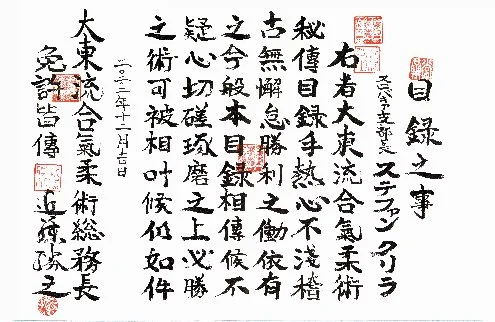 目録之事
支部長 ステファン クリラ
右者大東流合氣柔術
秘傳目録手熱心不淺稽
古無懈怠勝利之働依有
之今般本目録相傳候不
疑心切磋琢磨之上必勝
之術可被相叶候仍如件
月吉日
大東流合氣柔術総務長
免許皆傳 近藤勝之